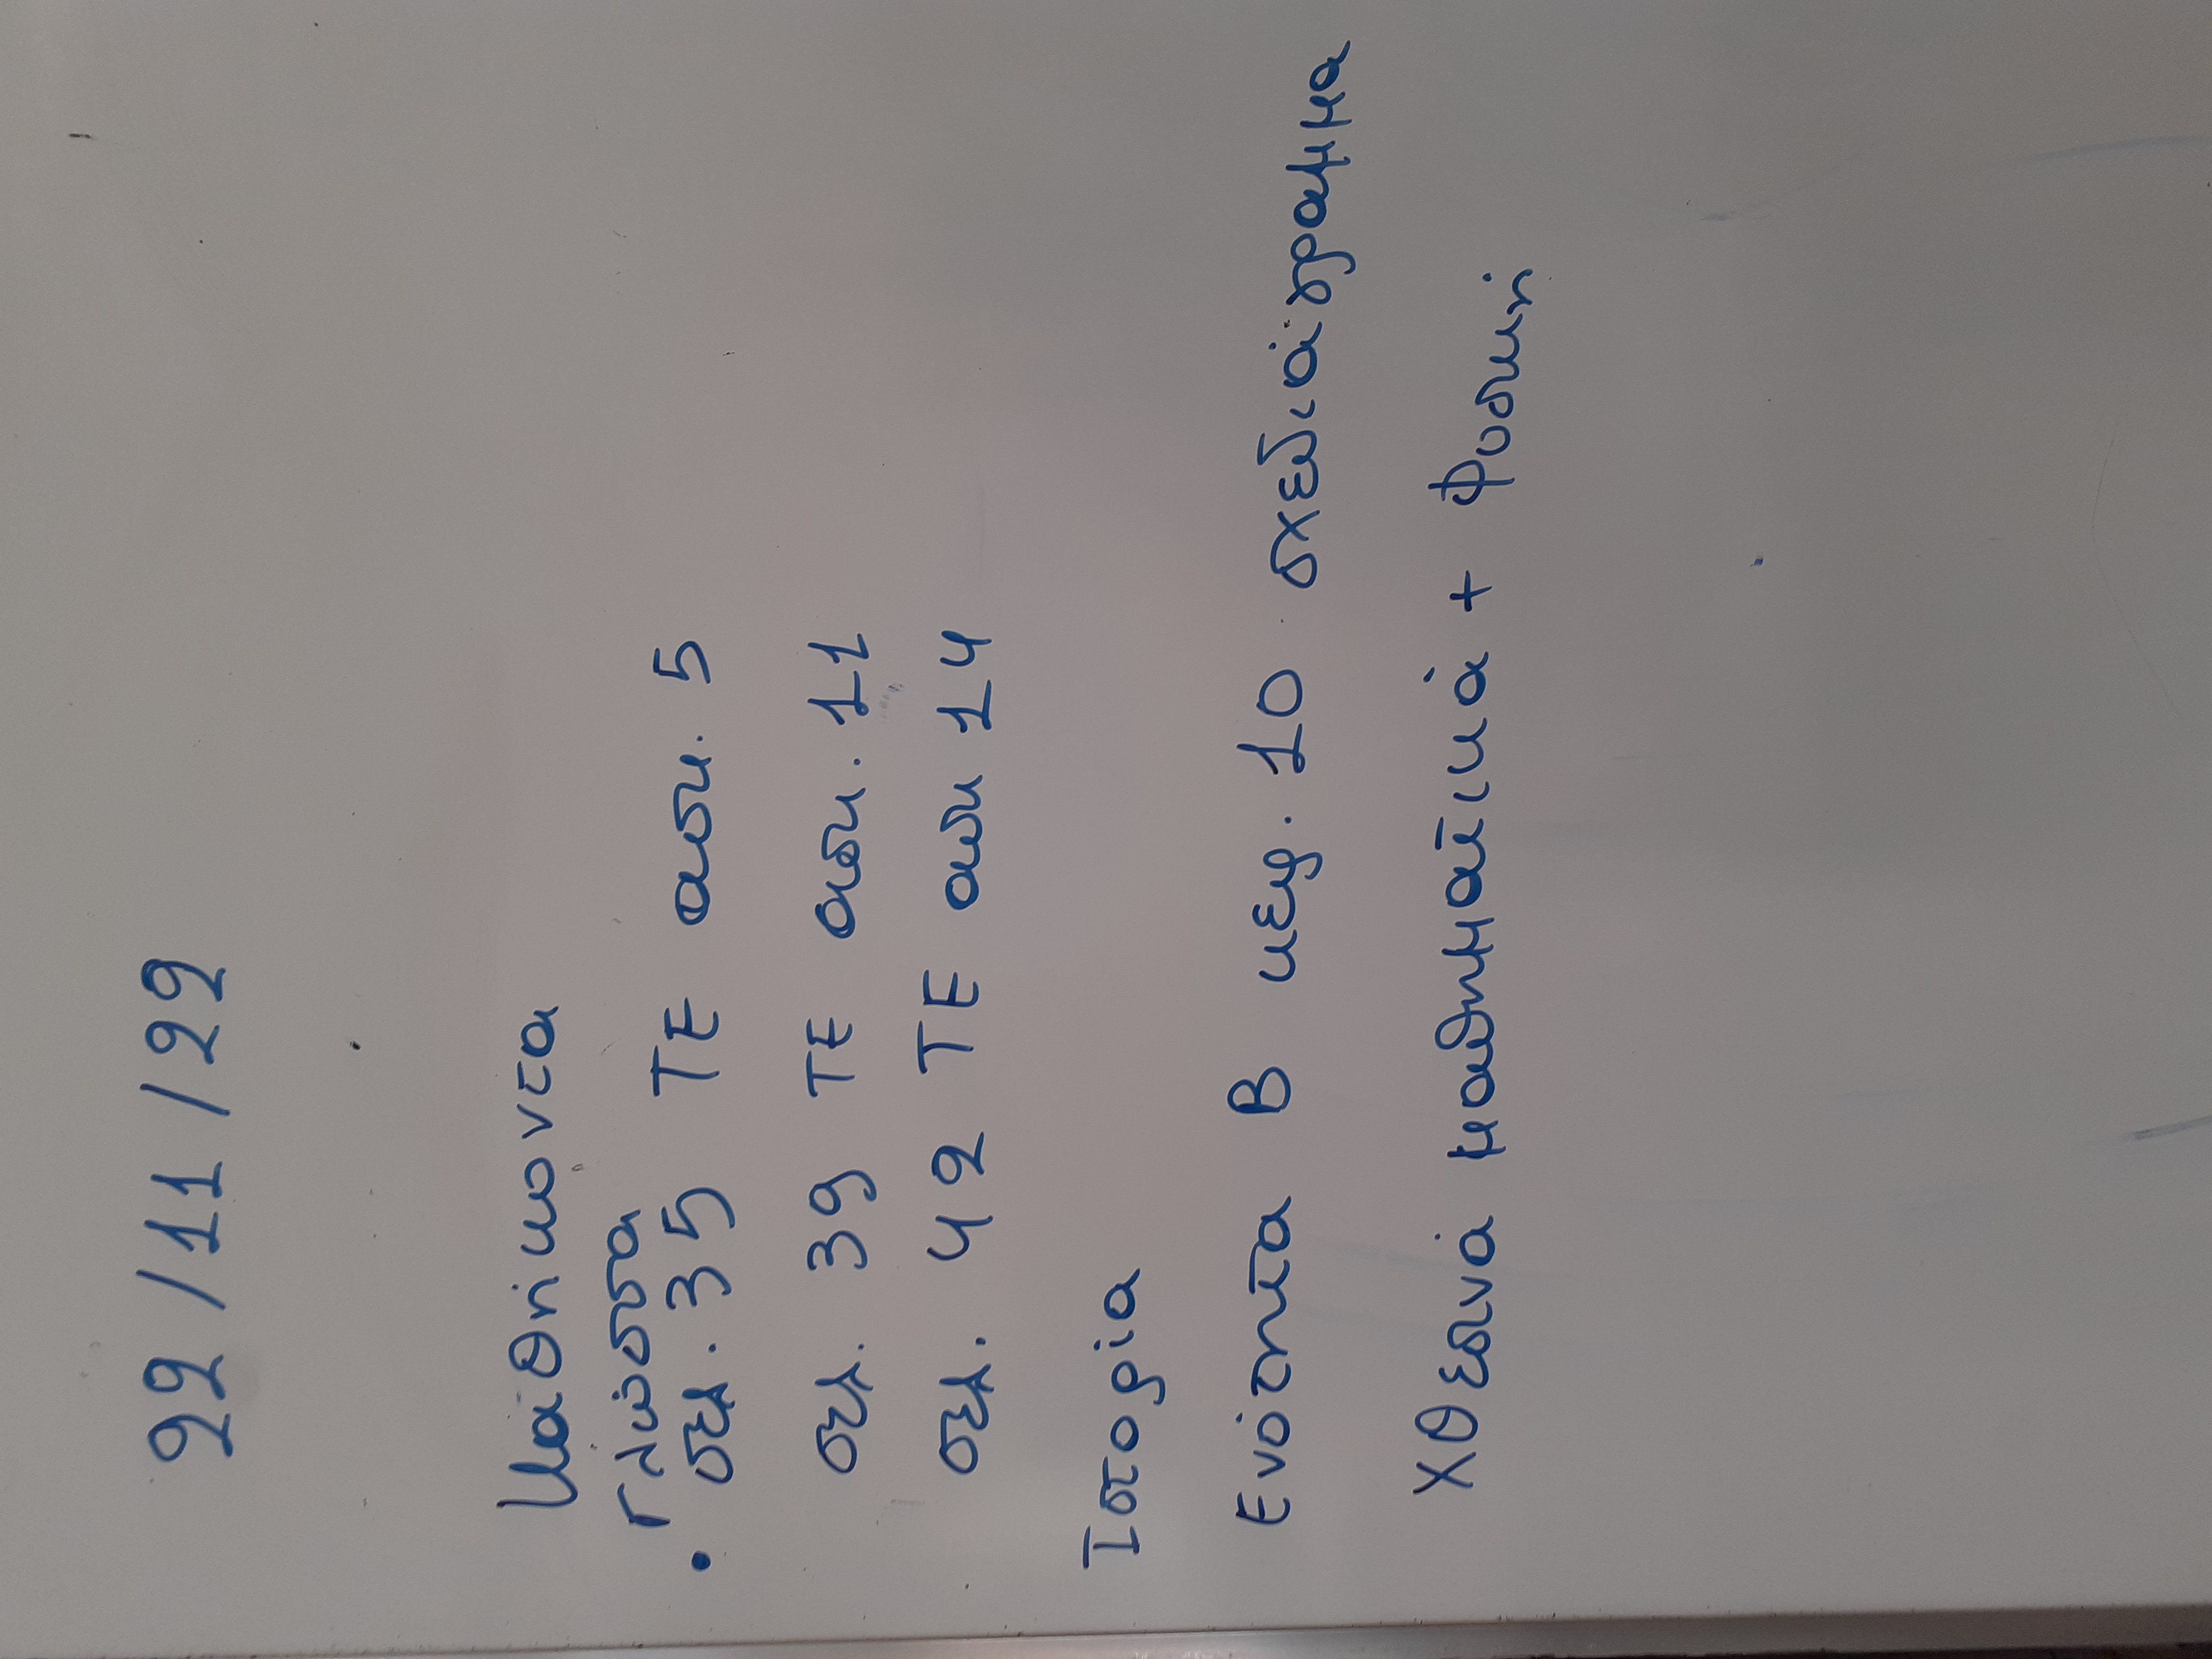 22/11/22
Καθήκοντα
Γλώσσα
• σελ. 35 ΤΕ ασκ. 5
σελ. 39 ΤΕ ασκ. 11
σελ. 42 ΤΕ ασκ 14
Ιστορία
Ενότητα Β κεφ. 10 σχεδιάγραμμα
Χθεσινά μαθηματικά + φυσική